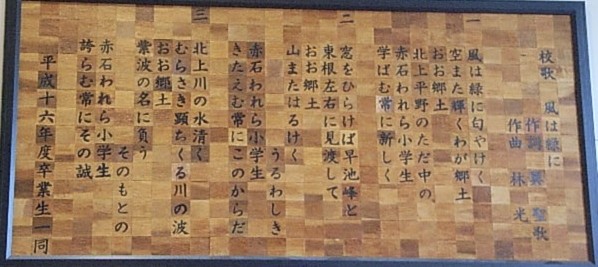 校歌 風は緑に
作詞 巽 聖歌
作曲 林 光
一
風は緑に匂やけく
空また輝くわが郷土
おお郷土
北上平野のただ中の
赤石われら小学生
学ばむ常に新しく
二
窓をひらけば早池峰と
東根左右に見渡して
おお郷土
山またはるけく
うるわしき
赤石われら小学生
きたえむ常にこのからだ
三
北上川の水清く
むらさき顕ちくる川の波
おお郷土
紫波の名に負う
そのもとの
赤石われら小学生
誇らむ常にその誠
平成十六年度卒業生一同